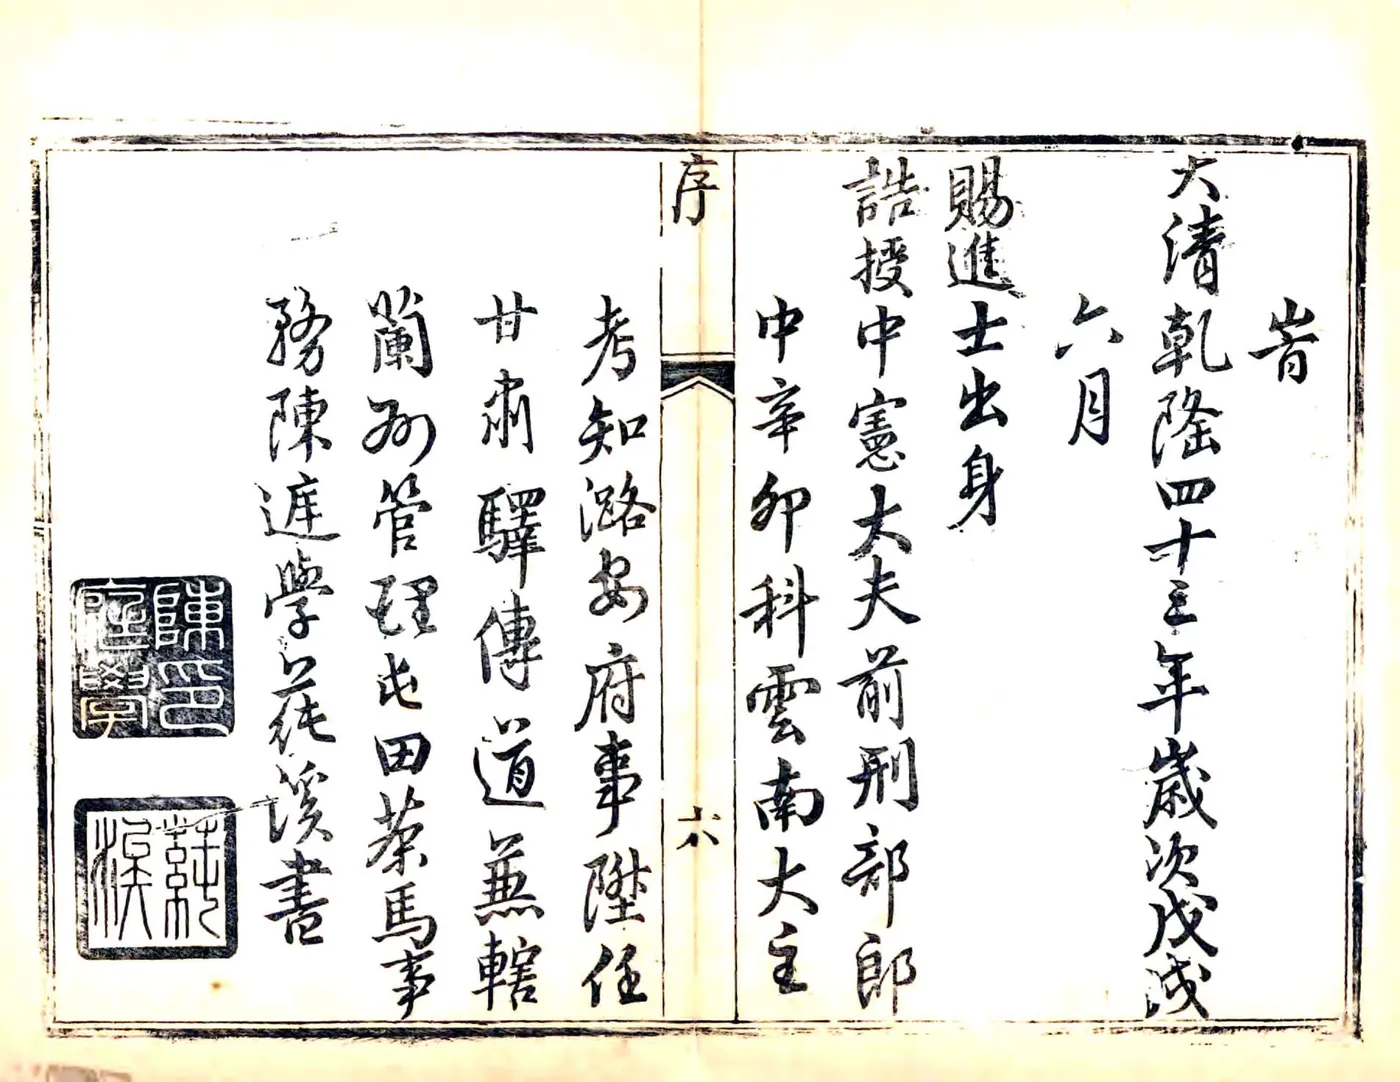 旹
大清乾隆四十三年歲次戊戌
六月
賜進士出身
誥授中憲大夫前刑部郎
中辛卯科雲南大主
序
六
考知潞安府事陞任
甘肅驛傳道兼轄
蘭州管理屯田茶馬事
務陳庭學蒓溪書
陳印
庭學
蒓
溪